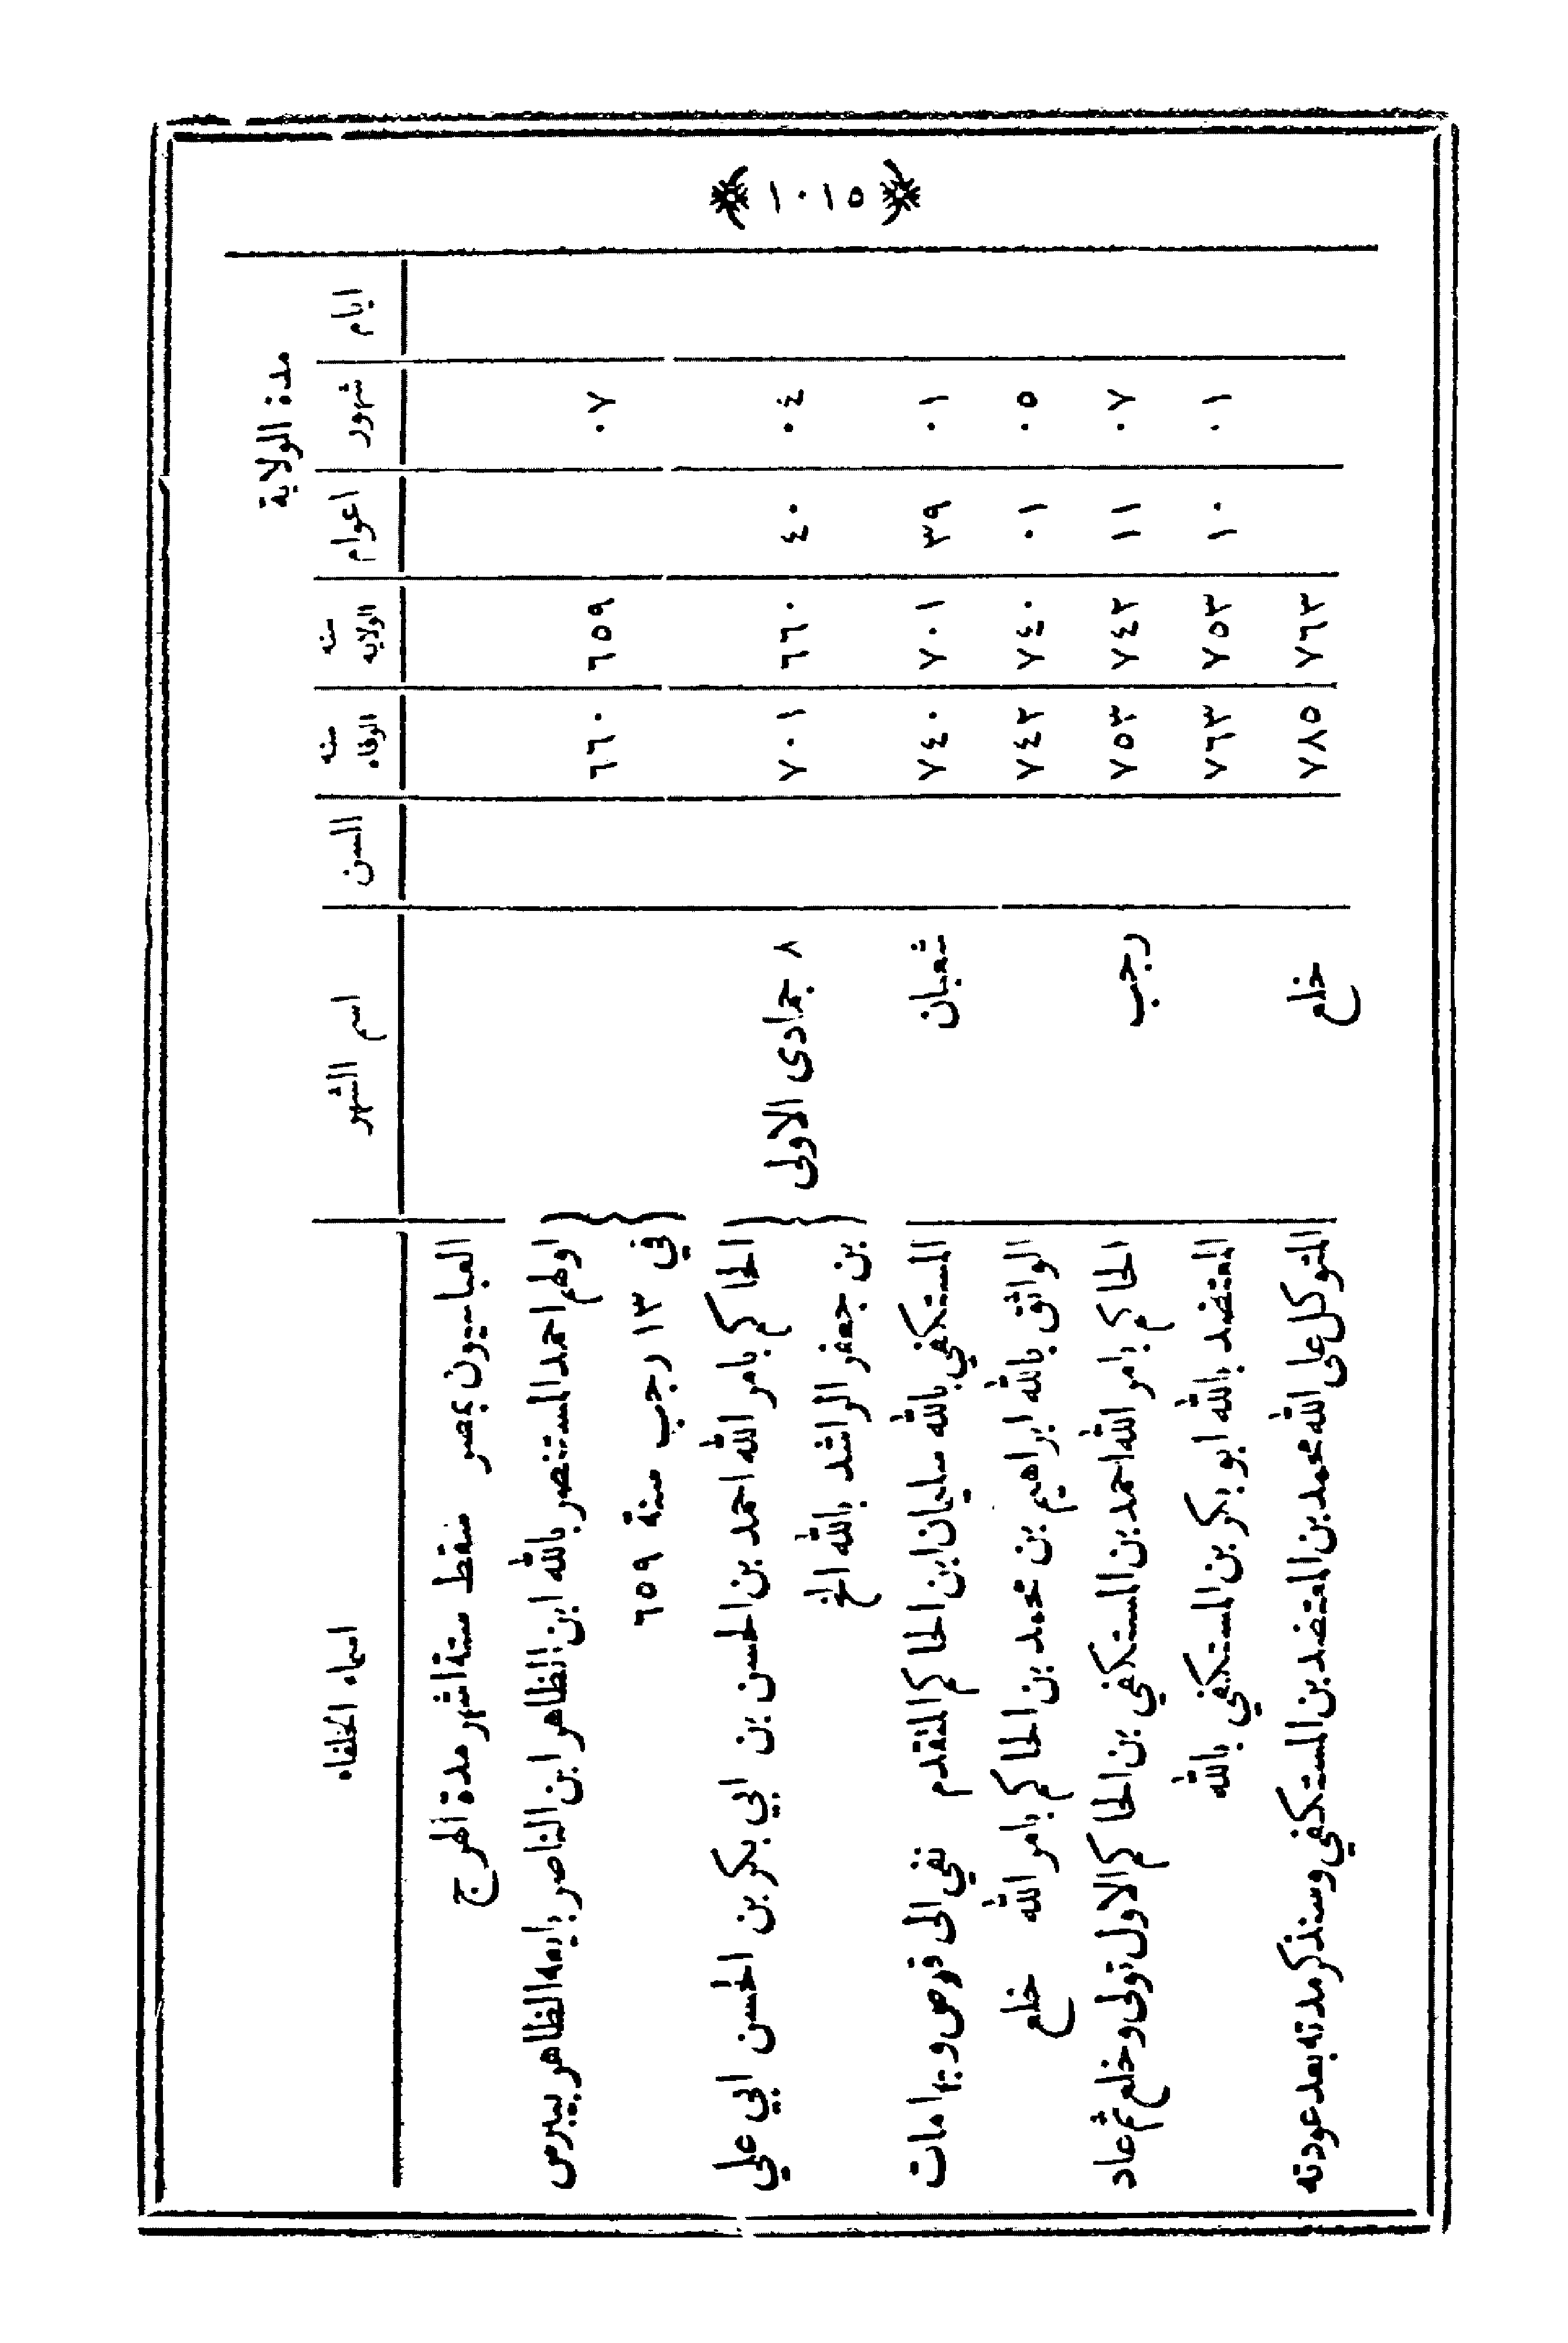 ﴿ ١٠١٥ ﴾
مدة الولاية
اسماء الخلفاء اسم الشهر السن سنه الوفاه سنه الولايه اعوام شهور ايام
العباسيون بمصر سقط ستة اشهر مدة الهرج
اولهم احمد المستنصر بالله ابن الظاهر ابن الناصر بايعه الظاهر بيبرس
في ١٣ رجب سنة ٦٥٩ ٦٦٠ ٦٥٩ ٠٧
الحاكم بامر الله احمد بن الحسن بن ابي بكر بن الحسن ابي علي
بن جعفر الراشد بالله الخ ٨ جمادى الاولى ٧٠١ ٦٦٠ ٤٠ ٠٤
المستكفي بالله سليمان ابن الحاكم المتقدم نفي الى قوص وبها مات شعبان ٧٤٠ ٧٠١ ٣٩ ٠١
الواثق بالله ابراهيم بن محمد بن الحاكم بامر الله خلع ٧٤٢ ٧٤٠ ٠١ ٠٥
الحاكم بامر الله احمد بن المستكفي بن الحاكم الاول تولى وخلع ثم عاد رجب ٧٥٣ ٧٤٢ ١١ ٠٧
المعتضد بالله ابو بكر بن المستكفي بالله ٧٦٣ ٧٥٣ ١٠ ٠١
المتوكل على الله محمد بن المعتضد بن المستكفي وسنذكر مدته بعد عودته خلع ٧٨٥ ٧٦٣